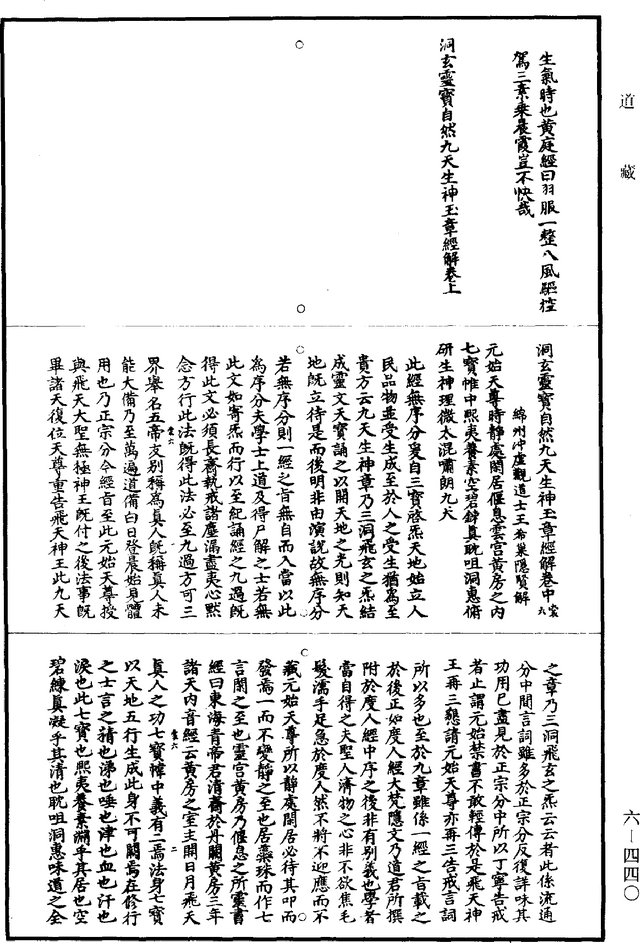 道藏
生氣時也黄庭經曰羽服一整八風驅控
駕三素乗晨霞豈不快哉
洞玄靈寶自然九天生神玉章經解卷上
洞玄靈寶自然九天生神玉章經解卷中 裳六
綿州冲虚觀道士王希巢隱賢解
元始天尊時静處閑居偃息雲宫黄房之内
七寶帷中熙夷養素空碧錬真耽咀洞惠俯
研生神理微太混嘯朗九天
此經無序分爰自三寶啓炁天地始立人
民品物並受生成至於人之受生猶為至
貴方云九天生神章乃三洞飛玄之炁結
成靈文天寶誦之以開天地之光則知天
地既立待是而後明非由演說故無序分
若無序分則一經之旨無自而入當以此
為序分夫學士上道及得尸解之士若無
此文如寄炁而行以至紀誦經之九過既
得此文必須長齋執戒諸塵漏盡夷心黙
念方行此法既得此法必至九過方可三
界舉名五帝友别稱為真人既稱真人未
能大備乃至萬遍道備白日登晨始見體
用也乃正宗分今經旨至此元始天尊授
與飛天大聖無極神王既付之後法事既
畢諸天復位天尊重告飛天神王此九天
之章乃三洞飛玄之炁云云者此係流通
分中間言詞雖多於正宗分反復詳味其
功用已盡見於正宗分中所以丁寧告戒
者止謂元始禁書不敢輕傳於是飛天神
王再三懇請元始天尊亦再三告戒言詞
所以多也至於九章雖係一經之旨載之
於後正如度人經大梵隱文乃道君所撰
附於度人經中序之後非有别義也學者
當自得之夫聖人濟物之心非不欲焦毛
髮濡手足急於度人然不將不迎應而不
蔵元始天尊所以静處閑居必待其叩而
發焉一而不變静之至也居蘂珠而作七
言閑之至也靈宫黄房乃偃息之所靈書
經曰東海青帝君清齋於丹闕黄房三年
諸天内音經云黄房之室主開日月飛天
真人之功七寶幃中義有二焉法身七寶
以天地五行生成此身不可闕焉在修行
之士言之精也涕也唾也津也血也汗也
淚也此七寶也熙夷養素湖乎其居也空
碧練真凝乎其清也耽咀洞惠味道之全
六—四四〇